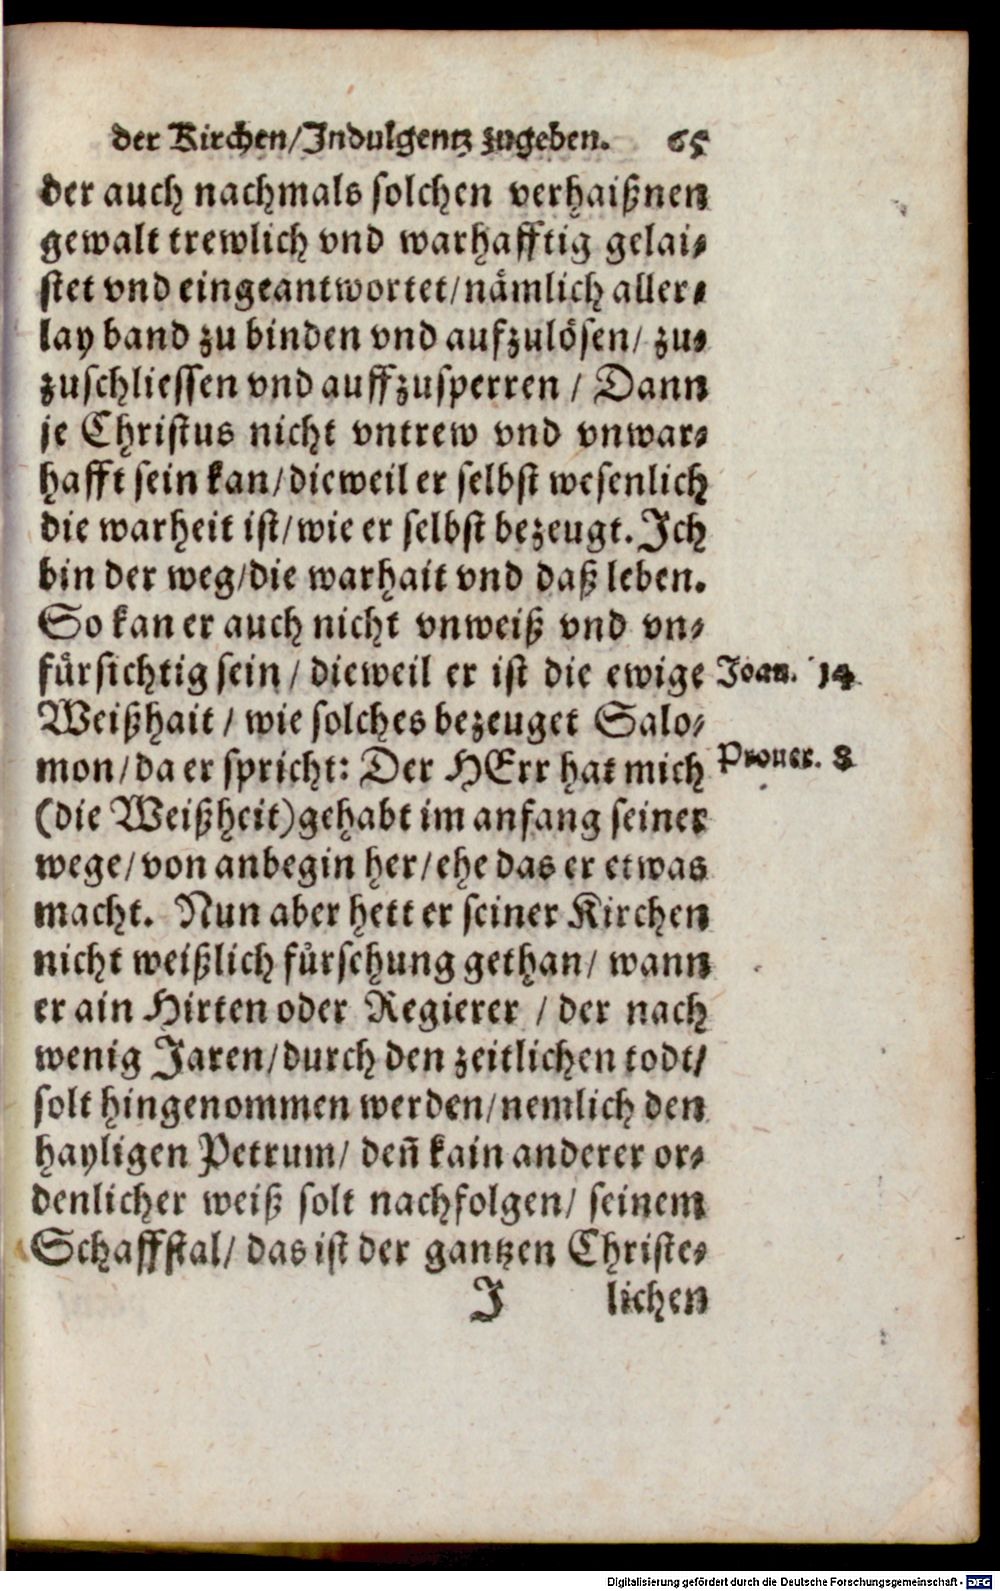 der Kirchen/Indulgentz zugeben. 65
der auch nachmals solchen verhaißnen
gewalt trewlich vnd warhafftig gelai⸗
stet vnd eingeantwortet/nämlich aller⸗
lay band zu binden vnd aufzulösen/ zu⸗
zuschliessen vnd auffzusperren / Dann
je Christus nicht vntrew vnd vnwar⸗
hafft sein kan/dieweil er selbst wesenlich
die warheit ist/wie er selbst bezeugt. Ich
bin der weg/die warhait vnd daß leben.
So kan er auch nicht vnweiß vnd vn⸗
fürsichtig sein / dieweil er ist die ewige Joan. 14
Weißhait / wie solches bezeuget Salo⸗
mon/da er spricht: Der HErr hat mich Prouer. 8
(die Weißheit)gehabt im anfang seiner
wege/von anbegin her/ehe das er etwas
macht. Nun aber hett er seiner Kirchen
nicht weißlich fürsehung gethan/ wann
er ain Hirten oder Regierer / der nach
wenig Jaren/durch den zeitlichen todt/
solt hingenommen werden/nemlich den
hayligen Petrum/ deñ kain anderer or⸗
denlicher weiß solt nachfolgen/ seinem
Schaffstal/ das ist der gantzen Christe⸗
J lichen
Digitalisierung gefördert durch die Deutsche Forschungsgemeinschaft - DFG